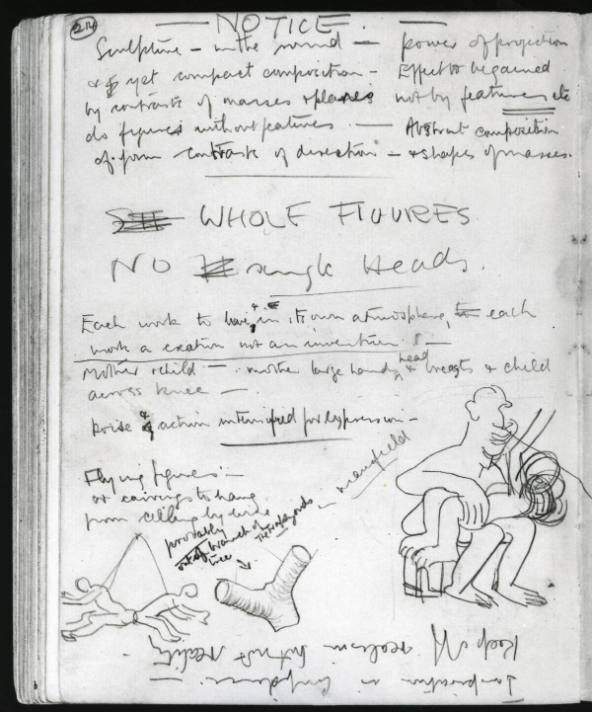 214
NOTICE.
Sculpture – in the round – power of projection
& yet compact composition – Effect to be gained
by contrasts of masses & planes not by features etc
do figures without features. — Abstract composition
of form contrasts of direction – & shapes of masses.
WHOLE FIGURES
NO single Heads.
Each work to live in its own atmosphere, each
work a creation not an invention
Mother & child — mother large hands, head breasts & child
across knee —
Poise & action intensified for expression –
Flying figures :–
or carvings to hang
from ceiling by wire
probably
out of branch of
tree
mansfield
Keep off realism but not reality
Inspiration is